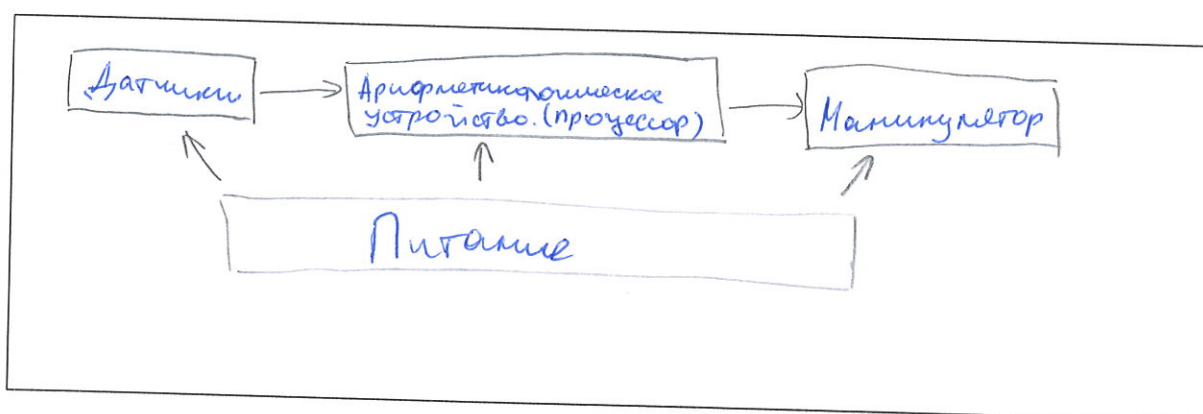 Датчики
Арифметикологическое
устройство. (процессор)
Манипулятор
Питание